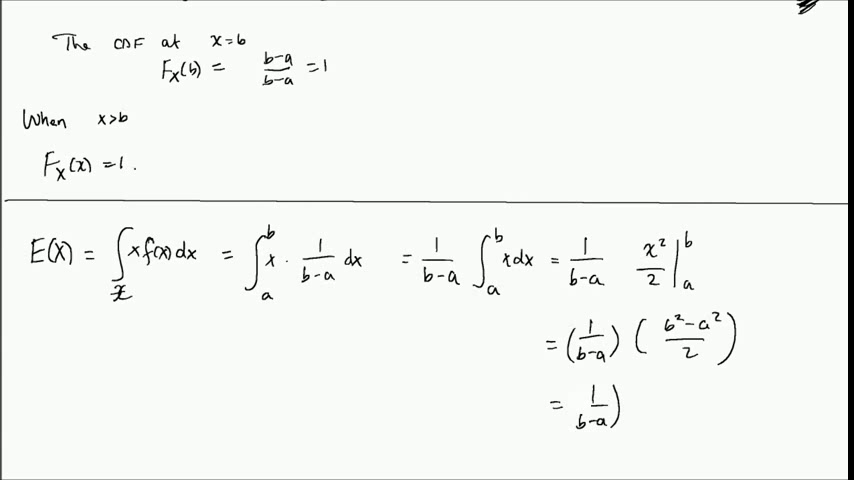 The CDF at x=b
F_X(b) = \frac{b-a}{b-a} = 1
When x>b
F_X(x) = 1.
E(X) = \int_x x f(x) dx = \int_a^b x · \frac{1}{b-a} dx = \frac{1}{b-a} \int_a^b x dx = \frac{1}{b-a} \frac{x^2}{2} |_a^b
= (\frac{1}{b-a}) ( \frac{b^2-a^2}{2} )
= \frac{1}{b-a})